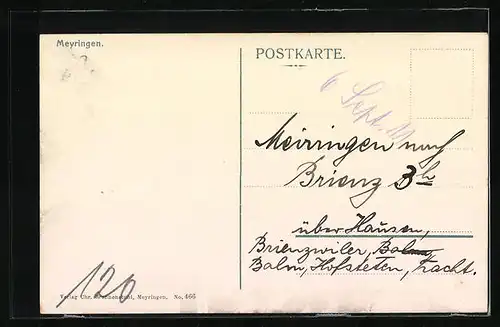 Meyringen.
POSTKARTE.
6 Sept. 11
Meiringen nach
Brienz 3h
über Hausen,
Brienzwiler,
Balm, Hofsteten, Tracht.
120
Verlag Chr. Brennenstuhl, Meyringen. No. 466